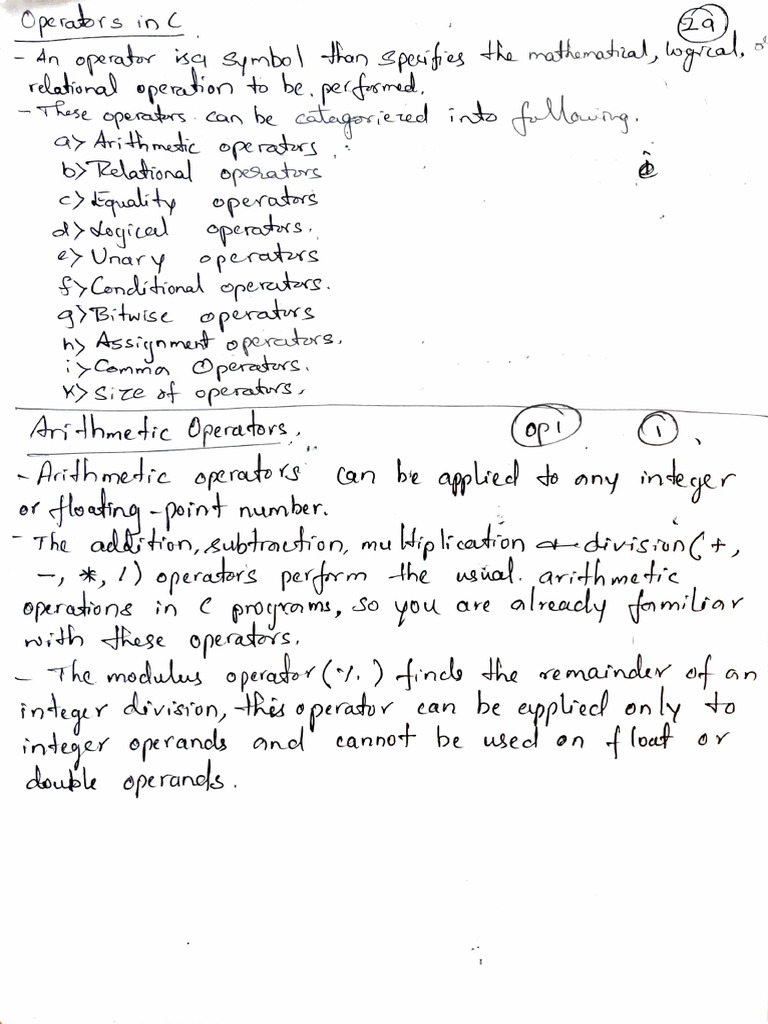 Operators in C
29
- An operator is a symbol than specifies the mathematical, logical, or
relational operation to be performed.
- These operators can be categoriezed into following.
a> Arithmetic operators
b> Relational operators
c> Equality operators
d> Logical operators.
e> Unary operators
f> Conditional operators.
g> Bitwise operators
h> Assignment operators.
i> Comma Operators.
k> Size of operators.
Arithmetic Operators.
op1
1
- Arithmetic operators can be applied to any integer
or floating-point number.
- The addition, subtraction, multiplication division (+,
-, *, /) operators perform the usual arithmetic
operations in C programs, so you are already familiar
with these operators.
- The modulus operator (%) finds the remainder of an
integer division, this operator can be applied only to
integer operands and cannot be used on float or
double operands.